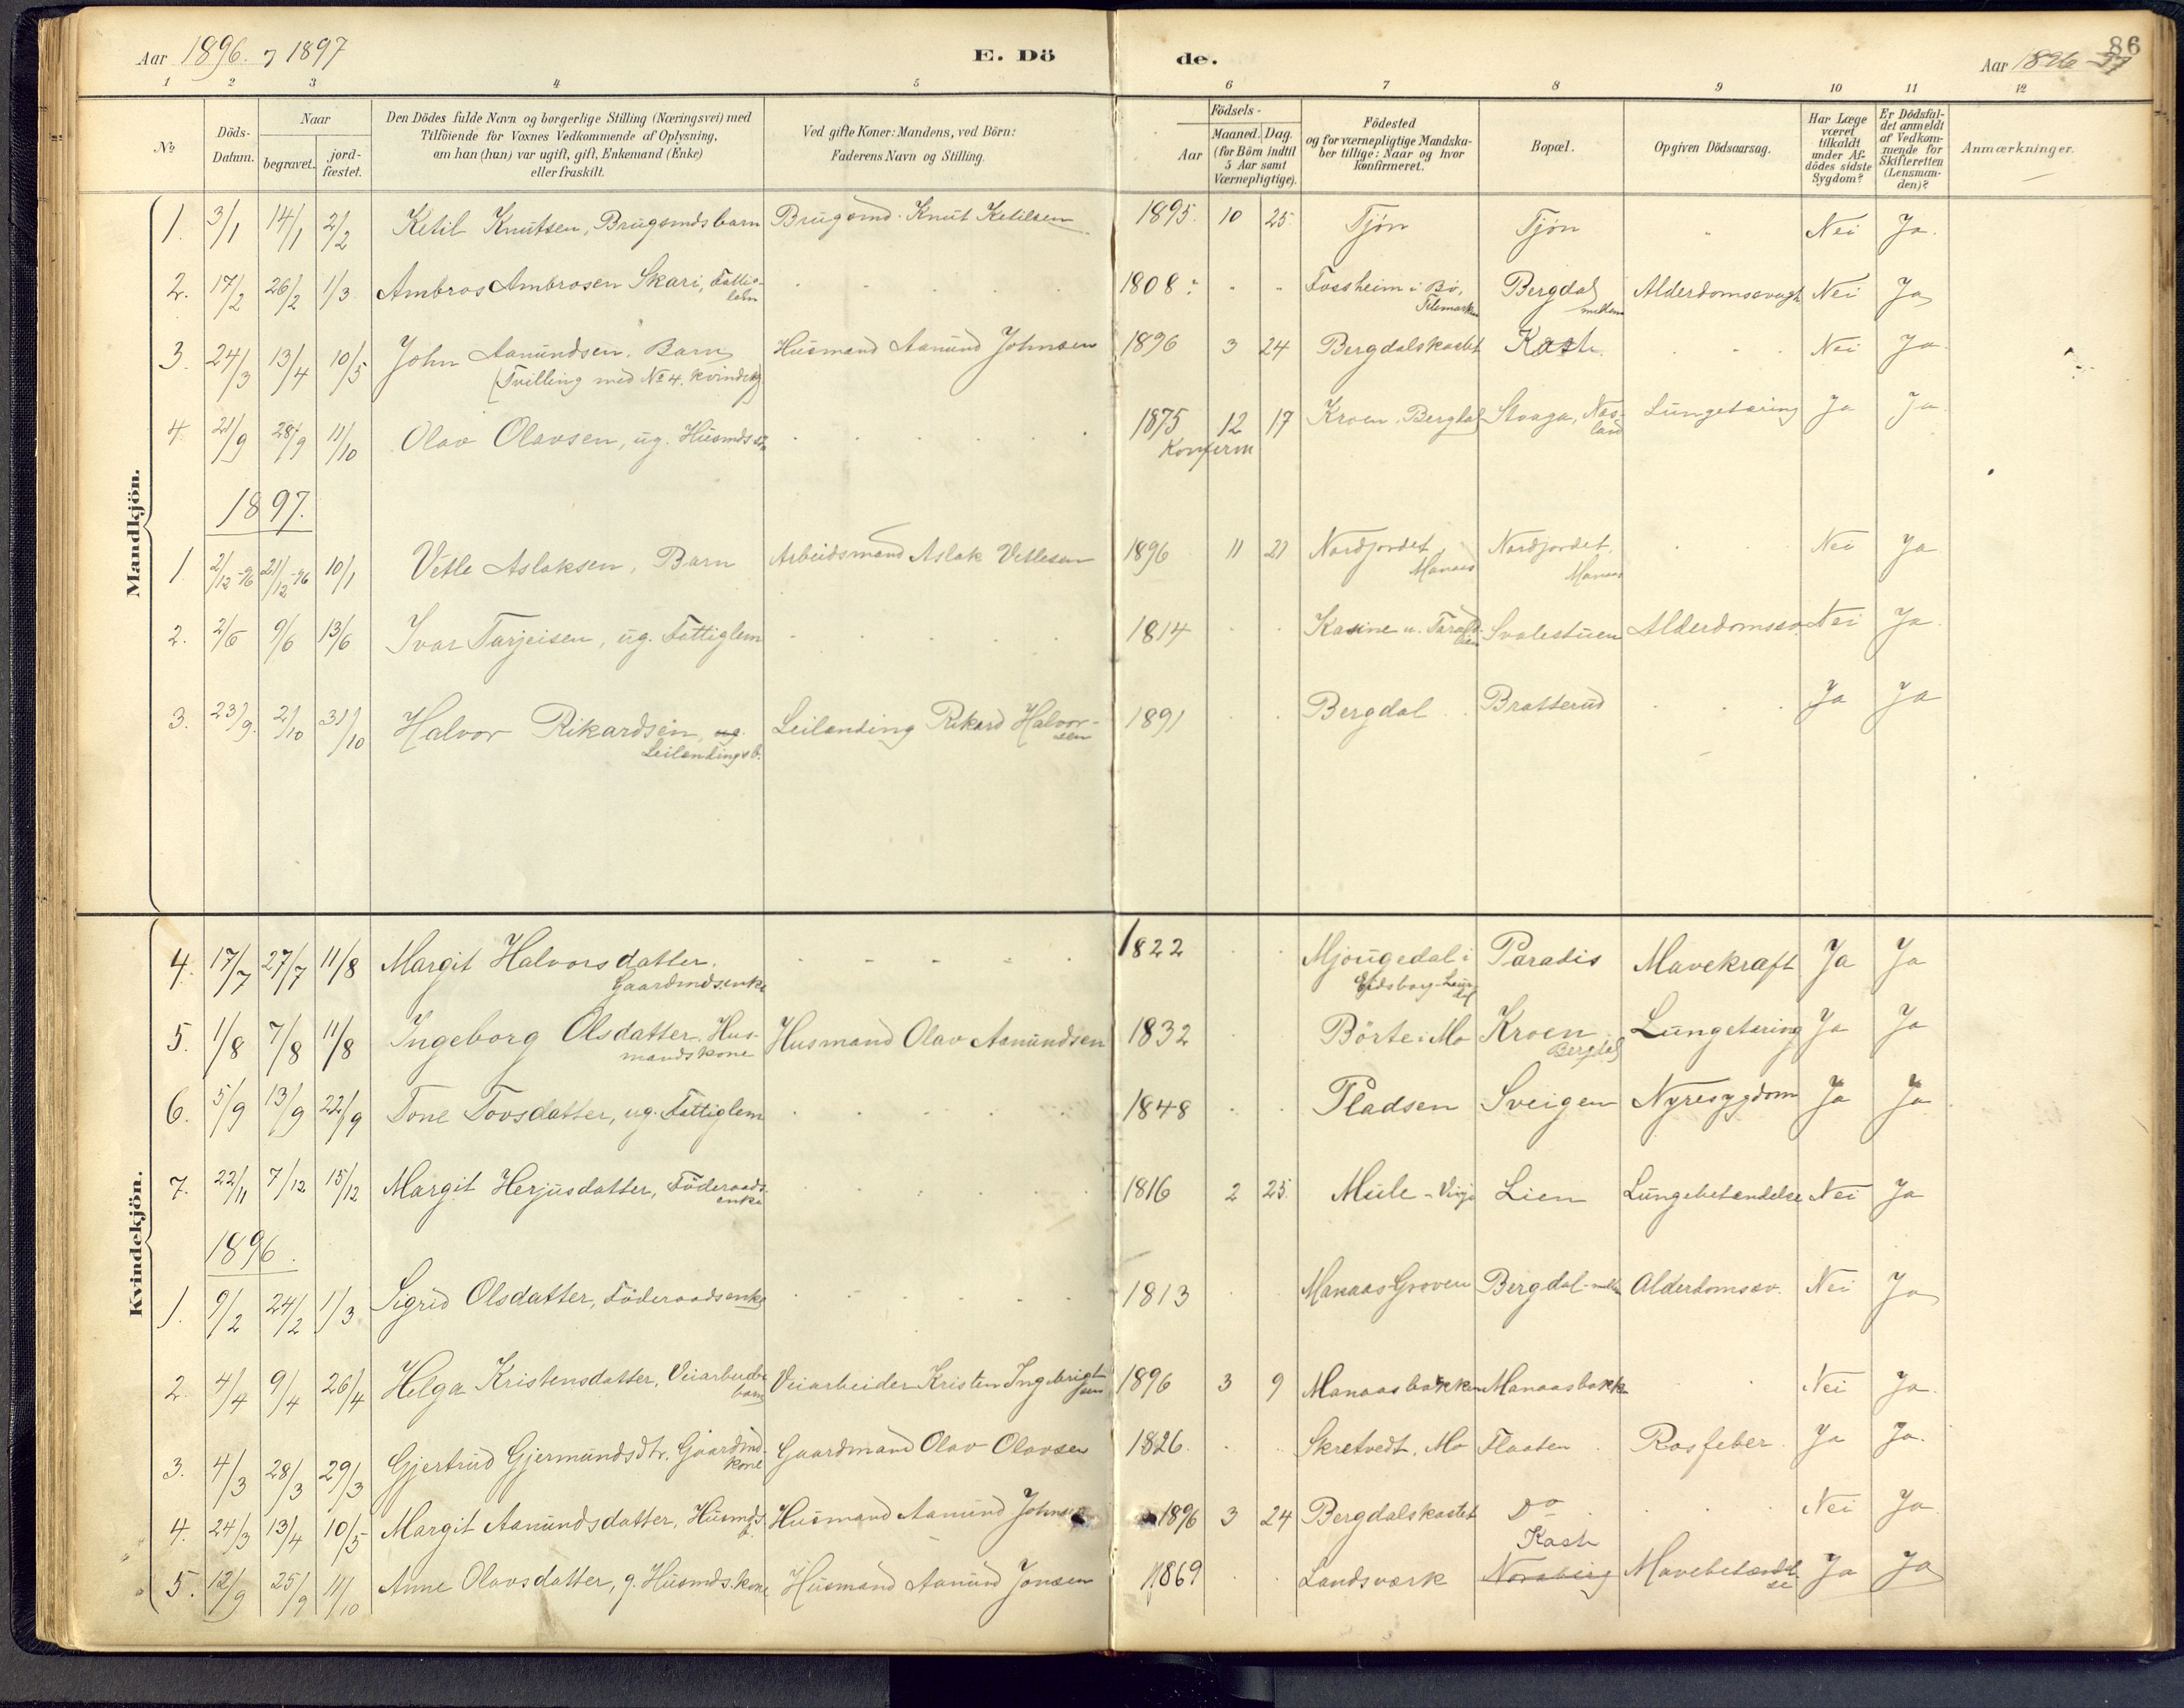 86
Aar 1896. og 1897 E. Dö de. Aar 1896-97
1 2 3 4 5 6 7 8 9 10 11 12
No
Döds-Datum.
Naar
begravet.
jord-fæstet.
Den Dödes fulde Navn og borgerlige Stilling (Næringsvei) med
Tilföiende for Voxnes Vedkommende af Oplysning,
om han (hun) var ugift, gift, Enkemand (Enke)
eller fraskilt.
Ved gifte Koner: Mandens, ved Börn:
Faderens Navn og Stilling.
Födsels-
Aar
Maaned. Dag.
(for Börn indtil
5 Aar samt
Værnepligtige).
Födested
og for værnepligtige Mandska-
ber tillige: Naar og hvor
konfirmeret.
Bopæl.
Opgiven Dödsaarsag.
Har Læge
været
tilkaldt
under Af-
dödes sidste
Sygdom?
Er Dödsfal-
det anmeldt
af Vedkom-
mende for
Skifteretten
(Lensman-
den)?
Anmærkninger.
Mandkjön.
1. 3/1 14/1 2/2 Ketil Knutsen, Brugsmdsbarn Brugsmd. Knut Ketilsen 1895. 10 25. Tjøn Tjøn " Nei Ja.
2. 17/2 26/2 1/3 Ambros Ambrosen Skari, Fattig-
lem 1808. Fossheim i Bø,
Telemarken Bergdal
mellem Alderdomssvagh Nei Ja
3. 24/3 13/4 10/5 John Aanundsen. Barn Husmand Aanund Johnsen 1896 3 24 Bergdalskastet Kast. Nei Ja
(Tvilling med No 4. kvindekj)
4. 21/9 28/9 11/10 Olav Olavsen, ug. Husmds 1875 12 17 Kroen, Bergdal Stoaga, Næs-
land Lungetæring Ja Ja
Konferm
1897.
1. 2/12-96 21/12-96 10/1 Vetle Aslaksen, Barn Arbeidsmand Aslak Vetlesen 1896 11 21 Nordjordet,
Manaas Nordjordet.
Manaas Nei Ja
2. 2/6 9/6 13/6 Ivar Tarjeisen, ug. Fattiglem 1814 Kasine u. Svalestuen Alderdomssv. Nei Ja.
3. 23/9. 2/10 31/10 Halvor Rikardsen, ug.
Leilændingsb. Leilænding Rikard Halvor-
sen 1891 Bergdal Bratterud Ja Ja
Kvindekjön.
4. 17/7 27/7 11/8 Margit Halvorsdatter.
Gaardmdsenke 1822 Mjougedal i
Eidsborg-Laur-
dal Paradis Mavekræft Ja Ja
5. 1/8 7/8 11/8 Ingeborg Olsdatter, Hus-
mandskone Husmand Olav Aanundsen 1832 Börte i Mo Kroen
Bergdal Lungetæring Ja Ja
6. 5/9 13/9 22/9 Tone Tovsdatter, ug. Fattiglem 1848 Pladsen Sveigen Nyresygdom Ja Ja
7. 22/11 7/12 15/12 Margit Herjusdatter, Föderaads-
enke 1816 2 25. Mule - Vinje Lien Lungebetændelse Nei Ja
1896.
1. 9/2 24/2 1/3 Sigrid Olsdatter, Föderaadsenke 1813 Manaas Groven Bergdal-mellem Alderdomssv. Nei Ja
2. 4/4 9/4 26/4 Helga Kristensdatter, Veiarbeider
barn Veiarbeider Kristen Ingebrigt
sen 1896 3 9 Manaasbakken Manaasbakk Nei Ja.
3. 4/3 28/3 29/3 Gjertrud Gjermundsdtr, Gaardmd-
kone Gaardmand Olav Olavsen 1826. Skretvedt, Mo Flaaten Rosfeber. Ja Ja.
4. 24/3 13/4 10/5 Margit Aanundsdatter, Husmds
b. Husmand Aanund Johnsen 1896 3 24 Bergdalskastet Do Nei Ja.
5. 12/9 25/9 11/10 Anne Olavsdatter, g. Husmds.kone Husmand Aanund Jonsen 1869 Landsværk Kast
Noraberg Mavebetændel
se Ja Ja